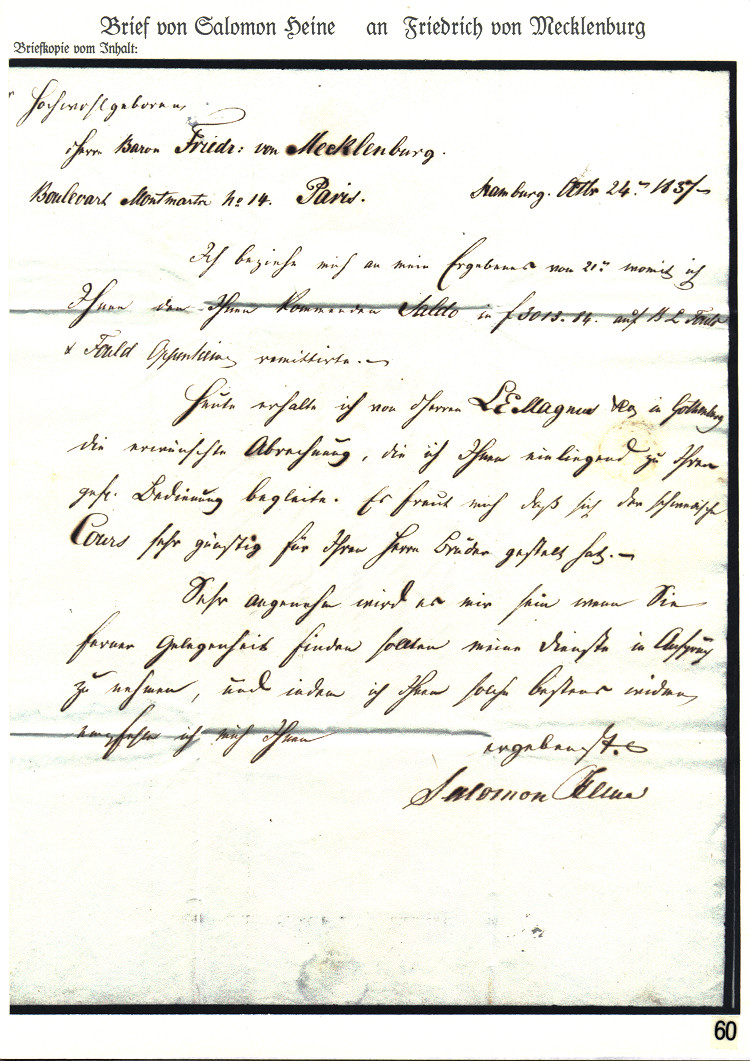 Brief von Salomon Heine an Friedrich von Mecklenburg
Briefkopie vom Inhalt:
Hochwohlgeboren
Herrn Baron Friedr: von Mecklenburg.
Boulevart Montmartre No 14. Paris. Hamburg. Octbr 24. 1837
Ich beziehe mich an mein Ergebenes vom 21. womit ich
Ihnen den Ihnen kommenden Saldo in f 3013. 14. auf B L Fould
& Fould Oppenheim remittirte.
Heute erhalte ich von Herren L E Magnus & Co in Gothenburg
die erwünschte Abrechnung, die ich Ihnen einliegend zu Ihrer
gef. Bedienung begleite. Es freut mich daß sich der schwedische
Cours sehr günstig für Ihren Herrn Bruder gestelt hat.
Sehr angenehm wird es mir sein wenn Sie
ferner Gelegenheit finden sollten meine Dienste in Anspruch
zu nehmen, und indem ich Ihnen solche bestens widme,
empfehle ich mich Ihnen
ergebenst.
Salomon Heine
60